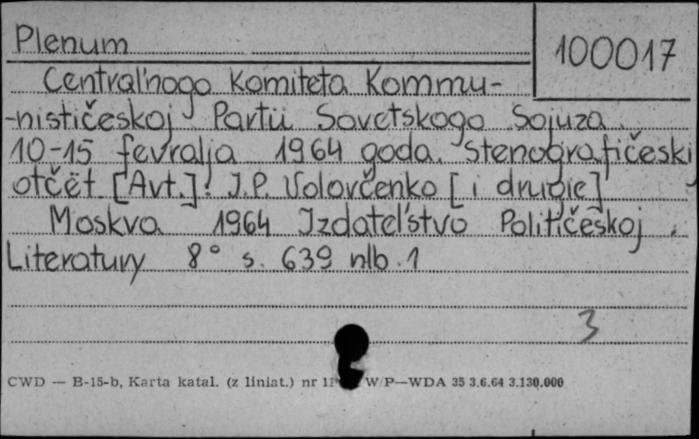 Plenum
100017
Central'nogo Komiteta Kommu-
-nističeskoj Partii Sovetskogo Sojuza.
10-15 fevralja 1964 goda. Stenografičeskij
otčët [Avt.]: I.P. Volovčenko [i drugie]
Moskva 1964 Izdatel'stvo Političeskoj
Literatury 8° s. 639 nlb. 1
3
CWD — B-15-b, Karta katal. (z liniat.) nr W/P—WDA 35 3.6.64 3.130.000